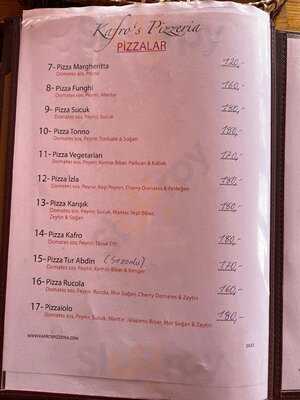 Kafro's Pizzeria
PİZZALAR
7- Pizza Margheritta 120,-
Domates sos, Peynir
8- Pizza Funghi 160,-
Domates sos, Peynir, Mantar
9- Pizza Sucuk 180,-
Domates sos, Peynir, Sucuk
10- Pizza Tonno 180,-
Domates sos, Peynir, Tonbalık & Soğan
11- Pizza Vegetarian 170,-
Domates sos, Peynir, Kırmızı Biber, Patlıcan & Kabak
12- Pizza İzla 180,-
Domates sos, Peynir, Keçi Peyniri, Cherry Domates & Fesleğen
13- Pizza Karışık 180,-
Domates sos, Peynir, Sucuk, Mantar, Yeşil Biber,
Zeytin & Soğan
14- Pizza Kafro 180,-
Domates sos, Peynir, Tavuk Eti
15- Pizza Tur Abdin 170,-
Domates sos, Peynir, Kırmızı Biber &
16- Pizza Rucola 160,-
Domates sos, Peynir, Rucola, Mor Soğan, Cherry Domates & Zeytin
17- Pizzaiolo 180,-
Domates sos, Peynir, Sucuk, Mantar, Jalapeno Biber, Mor Soğan & Zeytin
WWW.KAFROSPIZZERIA.COM